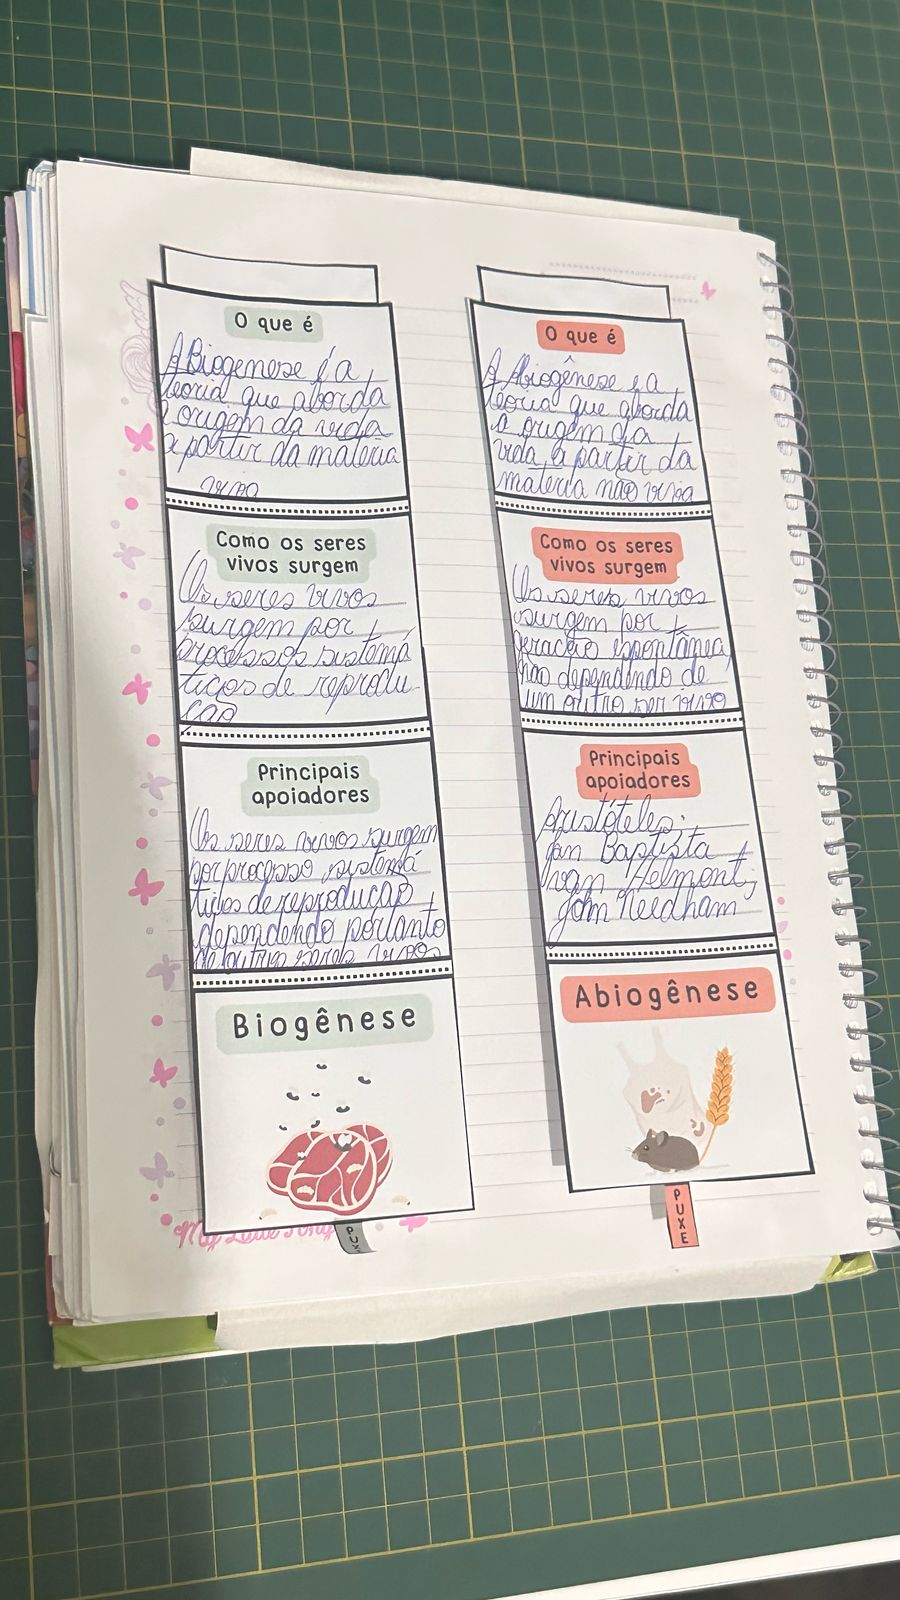 O que é
A Biogenese é a
teoria que aborda
a origem da vida
a partir da matéria
viva
Como os seres
vivos surgem
Os seres vivos
surgem por
processos sistemá
ticos de reprodu-
ção
Principais
apoiadores
Os seres vivos surgem
por processo sistemá
ticos de reprodução
dependendo portanto
de outros seres vivos
Biogênese
My Little Pony
PUX
O que é
A Abiogênese é a
teoria que aborda
a origem da
vida a partir da
matéria não viva
Como os seres
vivos surgem
Os seres vivos
surgem por
geração espontânea,
não dependendo de
um outro ser vivo
Principais
apoiadores
Aristóteles;
Jan Baptista
van Helmont;
John Needham
Abiogênese
PUXE